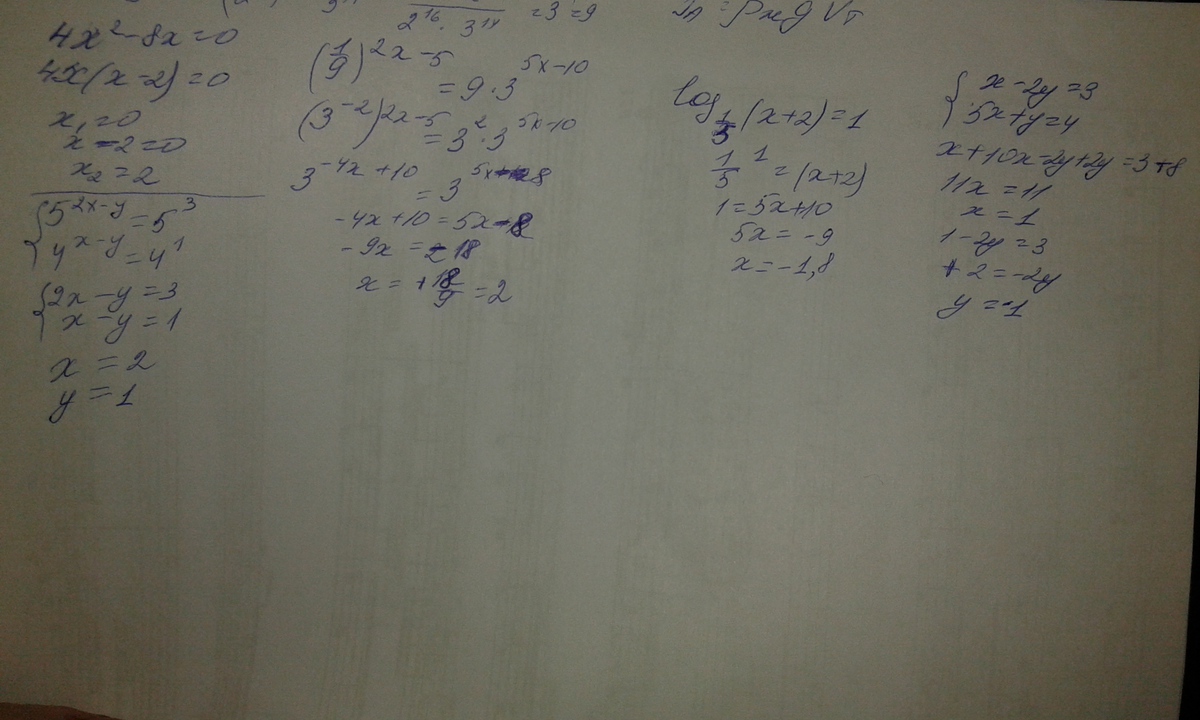 2^16 · 3^14 = 3² = 9
4x² - 8x = 0
4x(x - 2) = 0
x₁ = 0
x - 2 = 0
x₂ = 2
{5^(2x-y) = 5³
4^(x-y) = 4¹
{2x - y = 3
x - y = 1
x = 2
y = 1
(1/9)^(2x-5) = 9 · 3^(5x-10)
(3^-2)^(2x-5) = 3² · 3^(5x-10)
3^(-4x+10) = 3^(5x-8)
-4x + 10 = 5x - 8
-9x = -18
x = +18/9 = 2
log_(1/5) (x+2) = 1
1/5^1 = (x+2)
1 = 5x + 10
5x = -9
x = -1,8
{x - 2y = 3
5x + y = 4
x + 10x - 2y + 2y = 3 + 8
11x = 11
x = 1
1 - 2y = 3
+2 = -2y
y = -1